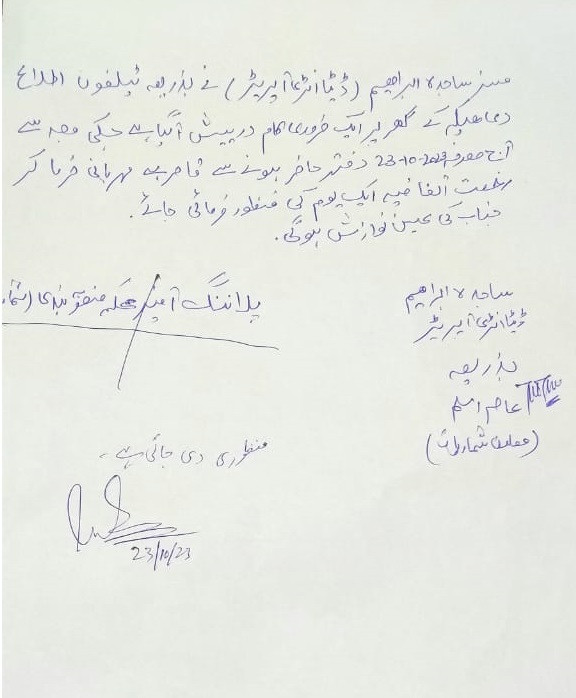 مسز ساجدہ ابراہیم (ڈیٹا انٹری آپریٹر) نے بذریعہ ٹیلفون اطلاع
دی ھیکہ کے گھر پر ایک ضروری کام درپیش آ گیا ہے جسکی وجہ سے
آج مورخہ 23-10-2023 دفتر حاضر ہونے سے قاصر ہے مہربانی فرما کر
رخصت اتفاقیہ ایک یوم کی منظور فرمائی جائے۔
جناب کی عین نوازش ہوگی۔
ساجدہ ابراہیم
ڈیٹا انٹری آپریٹر
بذریعہ
عامر اسلم
(معاون شماریات)
پلاننگ آفیسر محکمہ منصوبہ بندی
منظوری دی جاتی ہے۔
23/10/23